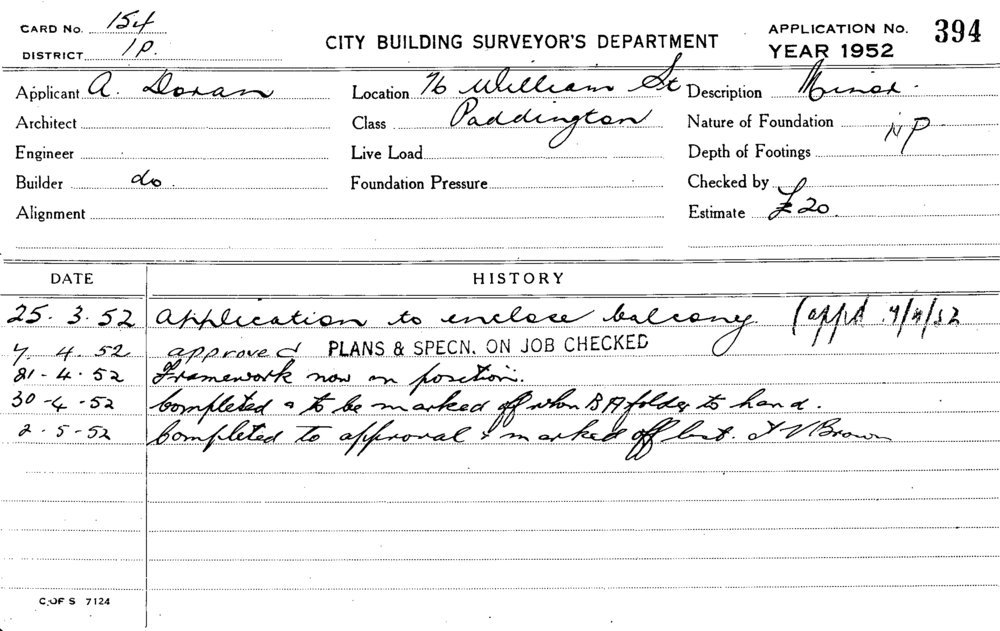 CARD No. 154
DISTRICT 1P.
CITY BUILDING SURVEYOR'S DEPARTMENT
APPLICATION No. 394
YEAR 1952
Applicant A. Doran
Location 76 William St
Description Minor.
Architect
Class Paddington
Nature of Foundation
NP
Engineer
Live Load
Depth of Footings
Builder do.
Foundation Pressure
Checked by
Alignment
Estimate £20.
DATE HISTORY
25. 3. 52 Application to enclose balcony. (app'd 7/4/52
7. 4. 52 approved PLANS & SPECN. ON JOB CHECKED
21-4-52 Framework now in position.
30-4-52 Completed & to be marked off when BA folder to hand.
2-5-52 Completed to approval & marked off Brown
C. OF S 7124